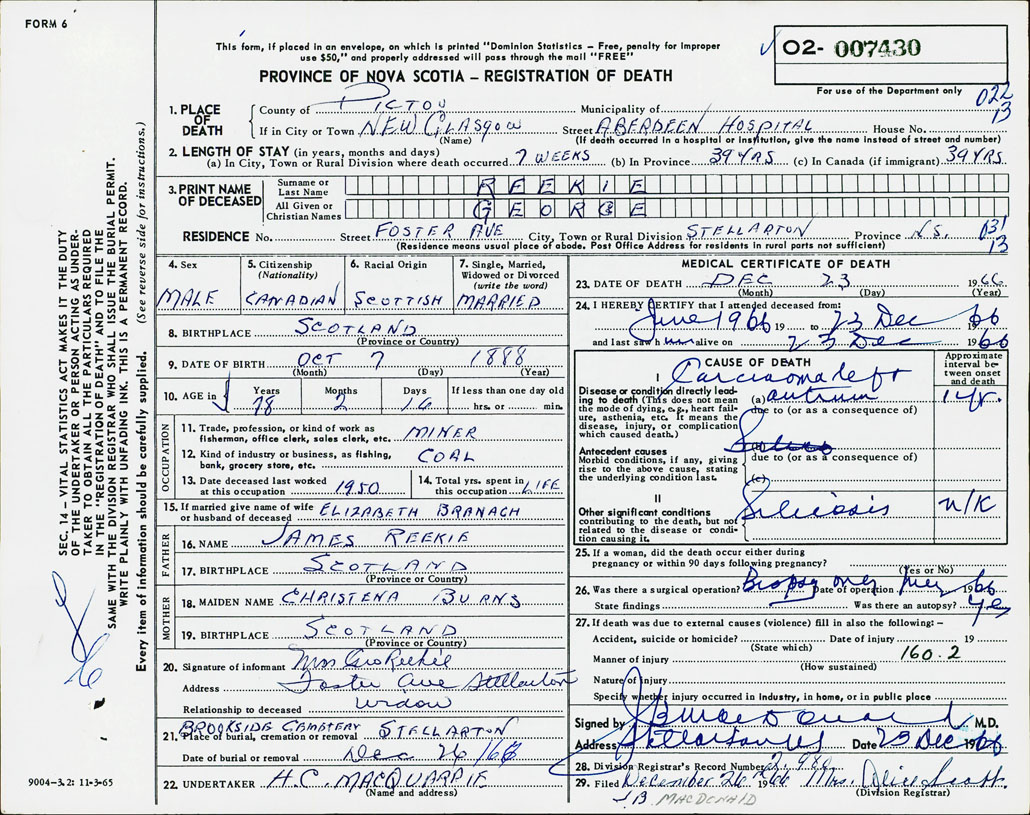 FORM 6
This form, if placed in an envelope, on which is printed "Dominion Statistics – Free, penalty for improper
use $50," and properly addressed will pass through the mail "FREE"
PROVINCE OF NOVA SCOTIA – REGISTRATION OF DEATH
02- 007430
For use of the Department only
022
13
1. PLACE OF DEATH
County of PICTOU Municipality of
If in City or Town NEW GLASGOW Street ABERDEEN HOSPITAL House No.
(Name) (If death occurred in a hospital or institution, give the name instead of street and number)
2. LENGTH OF STAY (in years, months and days)
(a) In City, Town or Rural Division where death occurred 7 WEEKS (b) In Province 39 YRS (c) In Canada (if immigrant) 39 YRS
3. PRINT NAME OF DECEASED
Surname or Last Name REEKIE
All Given or Christian Names GEORGE
RESIDENCE No. Street FOSTER AVE City, Town or Rural Division STELLARTON Province N.S. 131
13
(Residence means usual place of abode. Post Office Address for residents in rural parts not sufficient)
SEC. 14 – VITAL STATISTICS ACT MAKES IT THE DUTY
OF THE UNDERTAKER OR PERSON ACTING AS UNDER-
TAKER TO OBTAIN ALL THE PARTICULARS REQUIRED
IN THE "REGISTRATION OF DEATH" AND TO FILE THE
SAME WITH THE DIVISION REGISTRAR WHO SHALL ISSUE THE BURIAL PERMIT.
WRITE PLAINLY WITH UNFADING INK. THIS IS A PERMANENT RECORD.
Every item of information should be carefully supplied. (See reverse side for instructions.)
4. Sex
MALE
5. Citizenship
(Nationality)
CANADIAN
6. Racial Origin
SCOTTISH
7. Single, Married,
Widowed or Divorced
(write the word)
MARRIED
8. BIRTHPLACE SCOTLAND
(Province or Country)
9. DATE OF BIRTH OCT 7 1888
(Month) (Day) (Year)
10. AGE in
Years Months Days If less than one day old
78 2 16 hrs. or min.
OCCUPATION
11. Trade, profession, or kind of work as
fisherman, office clerk, sales clerk, etc. MINER
12. Kind of industry or business, as fishing,
bank, grocery store, etc. COAL
13. Date deceased last worked
at this occupation 1950
14. Total yrs. spent in
this occupation LIFE
15. If married give name of wife
or husband of deceased ELIZABETH BRANAGH
FATHER
16. NAME JAMES REEKIE
17. BIRTHPLACE SCOTLAND
(Province or Country)
MOTHER
18. MAIDEN NAME CHRISTENA BURNS
19. BIRTHPLACE SCOTLAND
(Province or Country)
20. Signature of informant Mrs Geo Reekie
Address Foster Ave Stellarton
Relationship to deceased widow
BROOKSIDE CEMETERY STELLARTON
21. Place of burial, cremation or removal
Date of burial or removal Dec 26/66
22. UNDERTAKER H.C. MACQUARRIE
(Name and address)
9004-3.2: 11-3-65
MEDICAL CERTIFICATE OF DEATH
23. DATE OF DEATH DEC 23 1966
(Month) (Day) (Year)
24. I HEREBY CERTIFY that I attended deceased from:
June 1966 19 to 23 Dec 66
and last saw him alive on 23 Dec 1966
CAUSE OF DEATH
Approximate
interval be-
tween onset
and death
I
Disease or condition directly lead-
ing to death (This does not mean
the mode of dying, e.g., heart fail-
ure, asthenia, etc. It means the
disease, injury, or complication
which caused death.)
Carcinoma left
(a) antrum 1 yr.
due to (or as a consequence of)
Antecedent causes
Morbid conditions, if any, giving
rise to the above cause, stating
the underlying condition last.
due to (or as a consequence of)
(c)
II
Other significant conditions
contributing to the death, but not
related to the disease or condi-
tion causing it.
Silicosis N/K
25. If a woman, did the death occur either during
pregnancy or within 90 days following pregnancy?
(Yes or No)
26. Was there a surgical operation? Biopsy only Date of operation 1966
State findings Was there an autopsy? Yes
27. If death was due to external causes (violence) fill in also the following: –
Accident, suicide or homicide? Date of injury 19
(State which)
Manner of injury 160.2
(How sustained)
Nature of injury
Specify whether injury occurred in industry, in home, or in public place
Signed by J B MacDonald M.D.
Address Stellarton NS Date 23 Dec 1966
28. Division Registrar's Record Number
29. Filed December 26th 1966 Mrs. Alice Scott
(Division Registrar)
J.B. MACDONALD